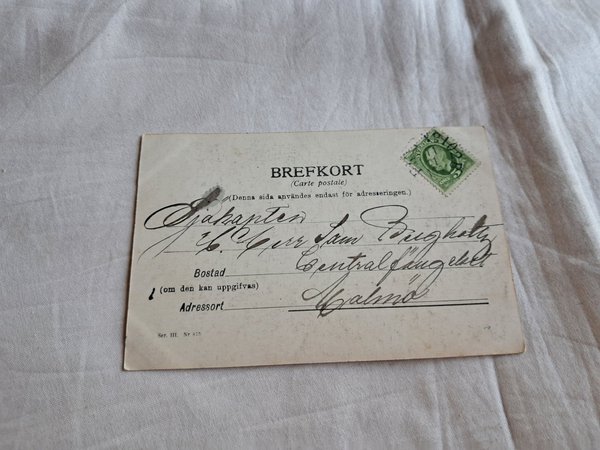 BREFKORT
(Carte postale)
(Denna sida användes endast för adresseringen.)
Sjökapten
Herr Sam Bergholtz
Bostad
Centralfängelset
(om den kan uppgifvas)
Adressort
Malmö
Ser. III. Nr.